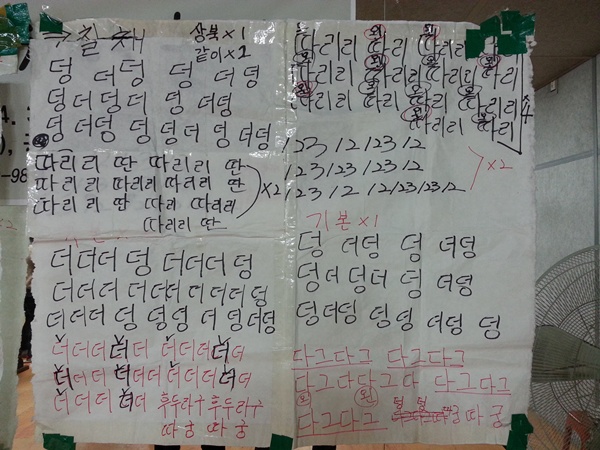 ⇒칠채
상북×1
같이×2
덩 더덩 덩 더덩
덩더덩더 덩 더덩
덩 더덩 덩 덩더 덩 더덩
따리리 딴 따리리 딴
따리리 따리리 따리리 딴
따리리 딴 따리 따리리
따리리 딴
×2
더더더 덩 더더더 덩
더더더 더더더 더더더덩
더더더 덩 덩덩 더 덩더덩
더더더더더 더더더더
더더더 더더더 더더더더
더더더 더더 후두라구 후두라구
따 궁 따 궁
따리리 따리 따리리 따리
따리리 따리리 따리리 따리
따리리 따리 따리 따리리
따리리 따리
×4
123 12 123 12
123123 123 12
123 12 12123123 12
×2
기본×1
덩 더덩 덩 더덩
덩더덩더 덩 더덩
덩더덩 덩덩 더덩 덩
다그다그 다그다그
다그다다그다 다그다그
다그다그 덩 덩 궁 따 궁